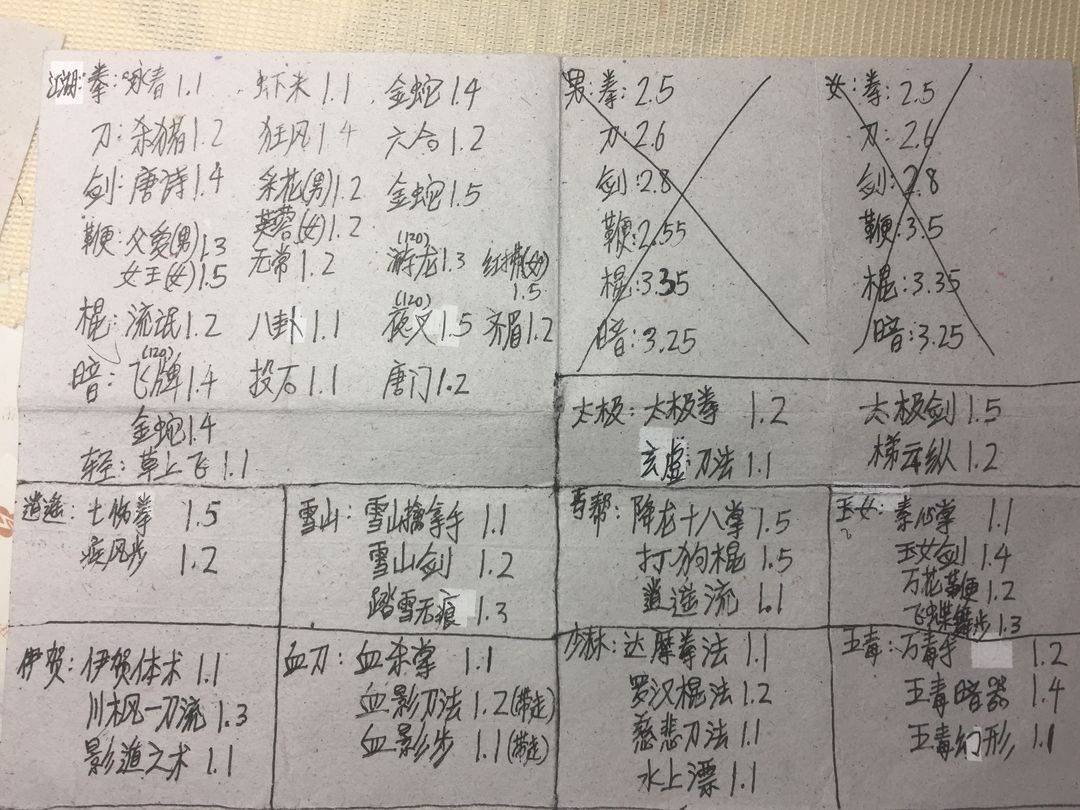 江湖: 拳: 咏春 1.1 虾米 1.1 金蛇 1.4
刀: 杀猪 1.2 狂风 1.4 六合 1.2
剑: 唐诗 1.4 采花(男) 1.2 金蛇 1.5
芙蓉(女) 1.2
鞭: 父爱(男) 1.3 无常 1.2 (120) 游龙 1.3 红拂(女)
女王(女) 1.5 1.5
棍: 流氓 1.2 八卦 1.1 (120) 夜叉 1.5 齐眉 1.2
暗: (120) 飞牌 1.4 投石 1.1 唐门 1.2
金蛇 1.4
轻: 草上飞 1.1
男: 拳: 2.5
刀: 2.6
剑: 2.8
鞭: 2.55
棍: 3.35
暗: 3.25
女: 拳: 2.5
刀: 2.6
剑: 2.8
鞭: 3.5
棍: 3.35
暗: 3.25
太极: 太极拳 1.2 太极剑 1.5
玄虚刀法 1.1 梯云纵 1.2
逍遥: 七伤拳 1.5
疾风步 1.2
雪山: 雪山擒拿手 1.1
雪山剑 1.2
踏雪无痕 1.3
丐帮: 降龙十八掌 1.5
打狗棍 1.5
逍遥流 1.1
玉女: 素心掌 1.1
玉女剑 1.4
万花鞭 1.2
飞蝶舞步 1.3
伊贺: 伊贺体术 1.1
川枫一刀流 1.3
影遁之术 1.1
血刀: 血杀掌 1.1
血影刀法 1.2(带走)
血影步 1.1(带走)
少林: 达摩拳法 1.1
罗汉棍法 1.2
慈悲刀法 1.1
水上漂 1.1
五毒: 万毒手 1.2
五毒暗器 1.4
五毒幻形 1.1